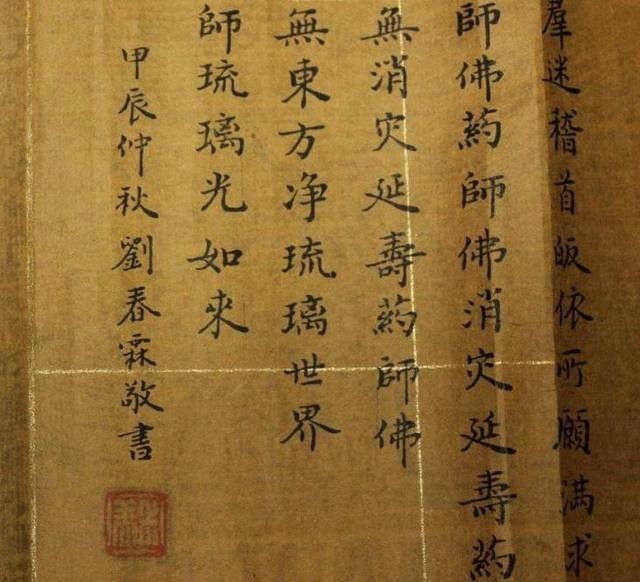 羣迷稽首皈依所願満求
師佛葯師佛消灾延壽葯
無消灾延壽葯師佛
無東方净琉璃世界
師琉璃光如來
甲辰仲秋劉春霖敬書